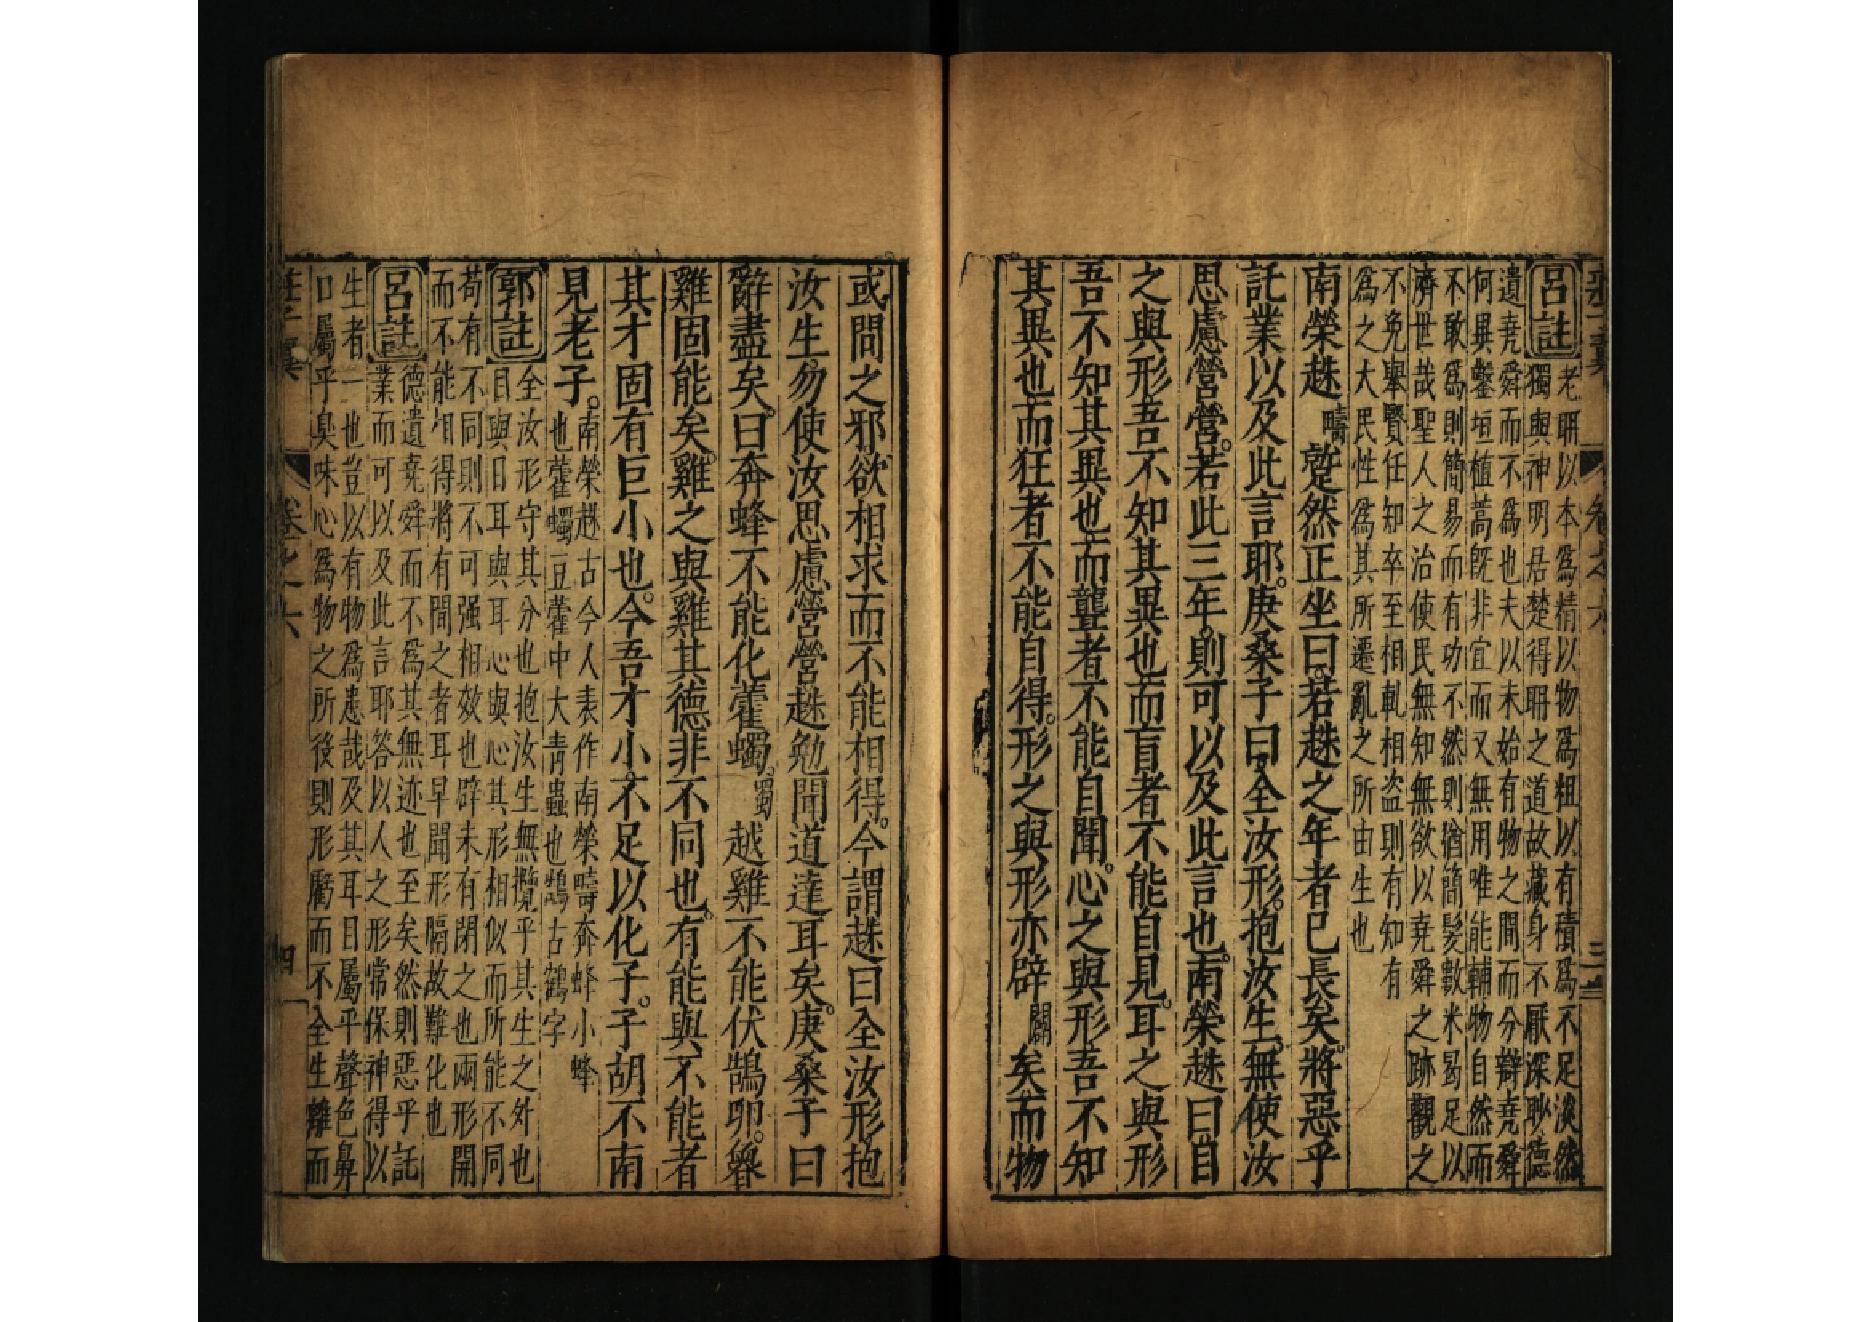 呂註
老聃以本爲精以物爲粗以有積爲不足淡然
獨與神明居楚得聃之道故藏身不厭深眇德
遺堯舜而不爲也夫以末始有物之間而分辯堯舜
何異鑿垣植蒿旣非宜而又無用唯能輔物自然而
不敢爲則簡易而有功不然則猶簡髮數米曷足以
濟世哉聖人之治使民無知無欲以堯舜之跡觀之
不免舉賢任知卒至相軋相盜則有知有
爲之大民性爲其所遷亂之所由生也
南榮趎疇蹵然正坐曰若趎之年者已長矣將惡乎
託業以及此言耶庚桑子曰全汝形抱汝生無使汝
思慮營營若此三年則可以及此言也南榮趎曰目
之與形吾不知其異也而盲者不能自見耳之與形
吾不知其異也而聾者不能自聞心之與形吾不知
其異也而狂者不能自得形之與形亦辟闢矣而物
或間之邪欲相求而不能相得今謂趎曰全汝形抱
汝生勿使汝思慮營營趎勉聞道達耳矣庚桑子曰
辭盡矣曰奔蜂不能化藿蠋蜀越雞不能伏鵠卵魯
雞固能矣雞之與雞其德非不同也有能與不能者
其才固有巨小也今吾才小不足以化子子胡不南
見老子南榮趎古今人表作南榮疇奔蜂小蜂
也藿蠋豆藿中大青蟲也鵠古鶴字
郭註
全汝形守其分也抱汝生無攬乎其生之外也
目與目耳與耳心與心其形相似而所能不同
苟有不同則不可强相效也辟未有閉之也兩形開
而不能相得將有間之者耳早聞形隔故難化也
呂註
德遺堯舜而不爲其無迹也至矣然則惡乎託
業而可以及此言耶答以人之形常保神得以
生者一也豈以有物爲患哉及其耳目屬乎聲色鼻
口屬乎臭味心爲物之所後則形屬而不全生離而
莊子翼 卷之六 四